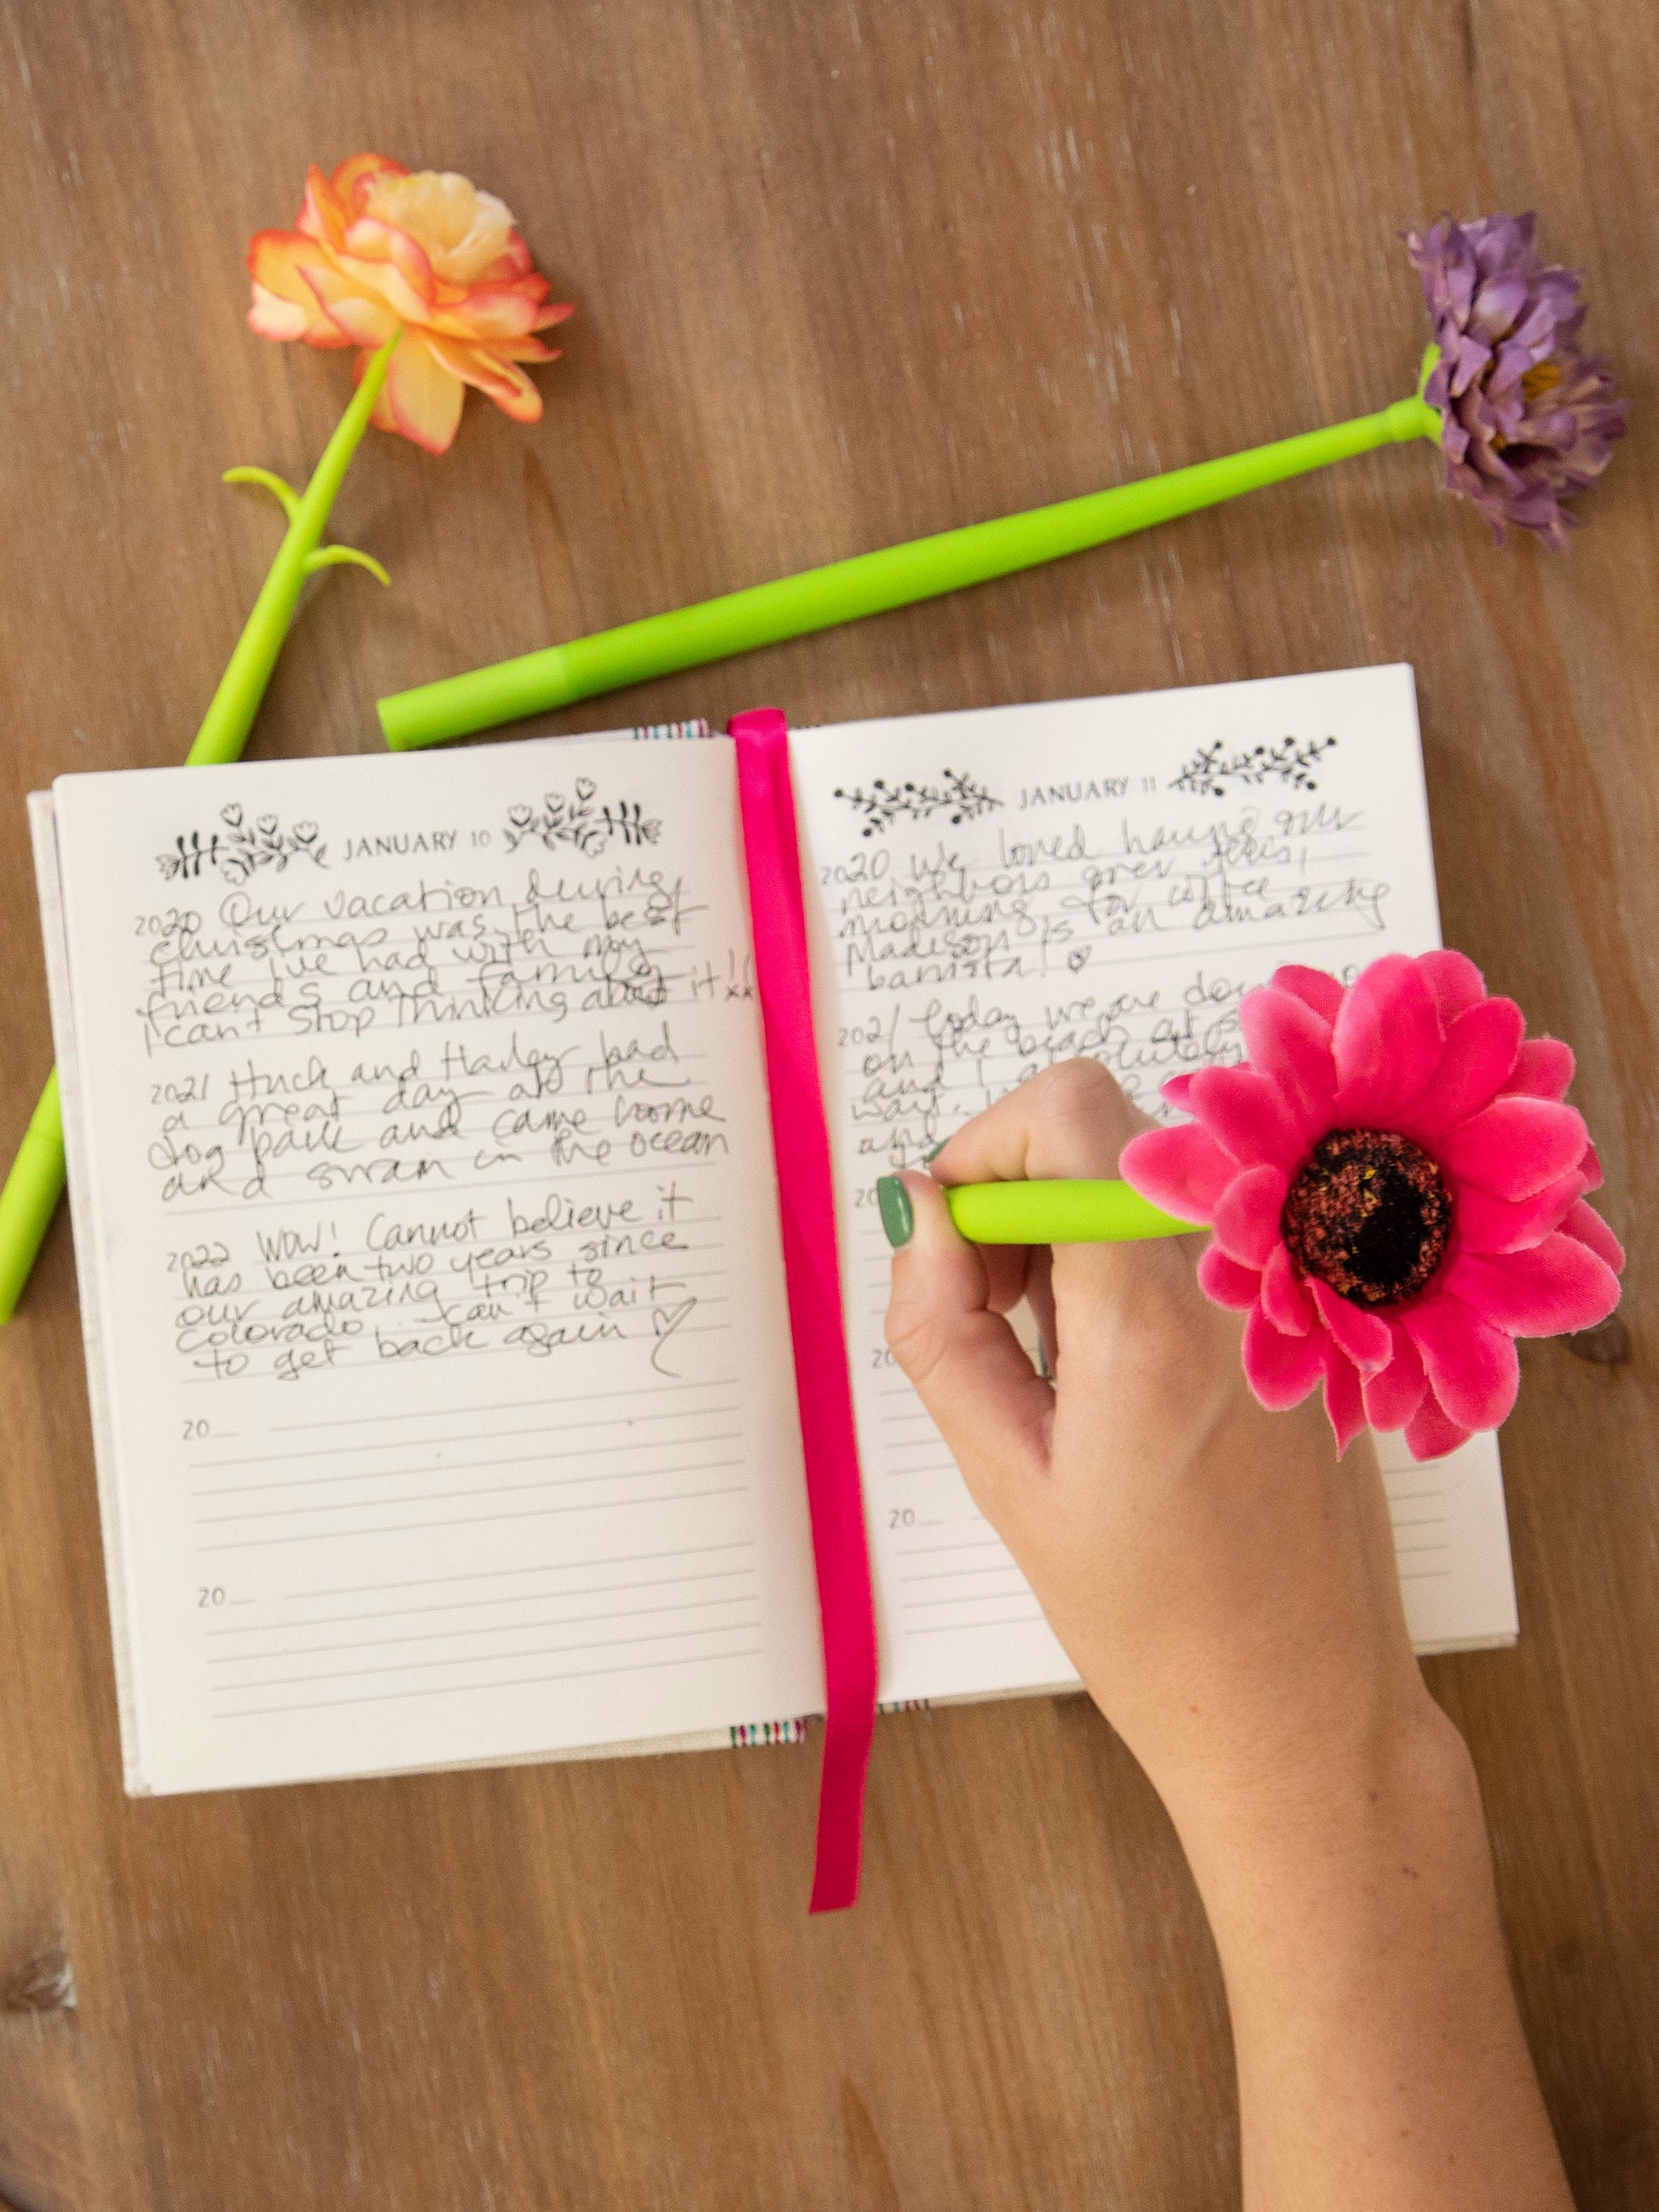 JANUARY 10
2020 Our vacation during
christmas was the best
time I've had with my
friends and family
I can't stop thinking about it!!
2021 Huck and Harley had
a great day at the
dog park and came home
and swam in the ocean
2022 WOW! Cannot believe it
has been two years since
our amazing trip to
colorado. can't wait
to get back again
20
20
JANUARY 11
2020 We loved having our
neighbors over this
morning for coffee,
Madison is an amazing
barrista!
2021 Today we are
on the beach at
and I absolutely
wait.
and
20
20
20